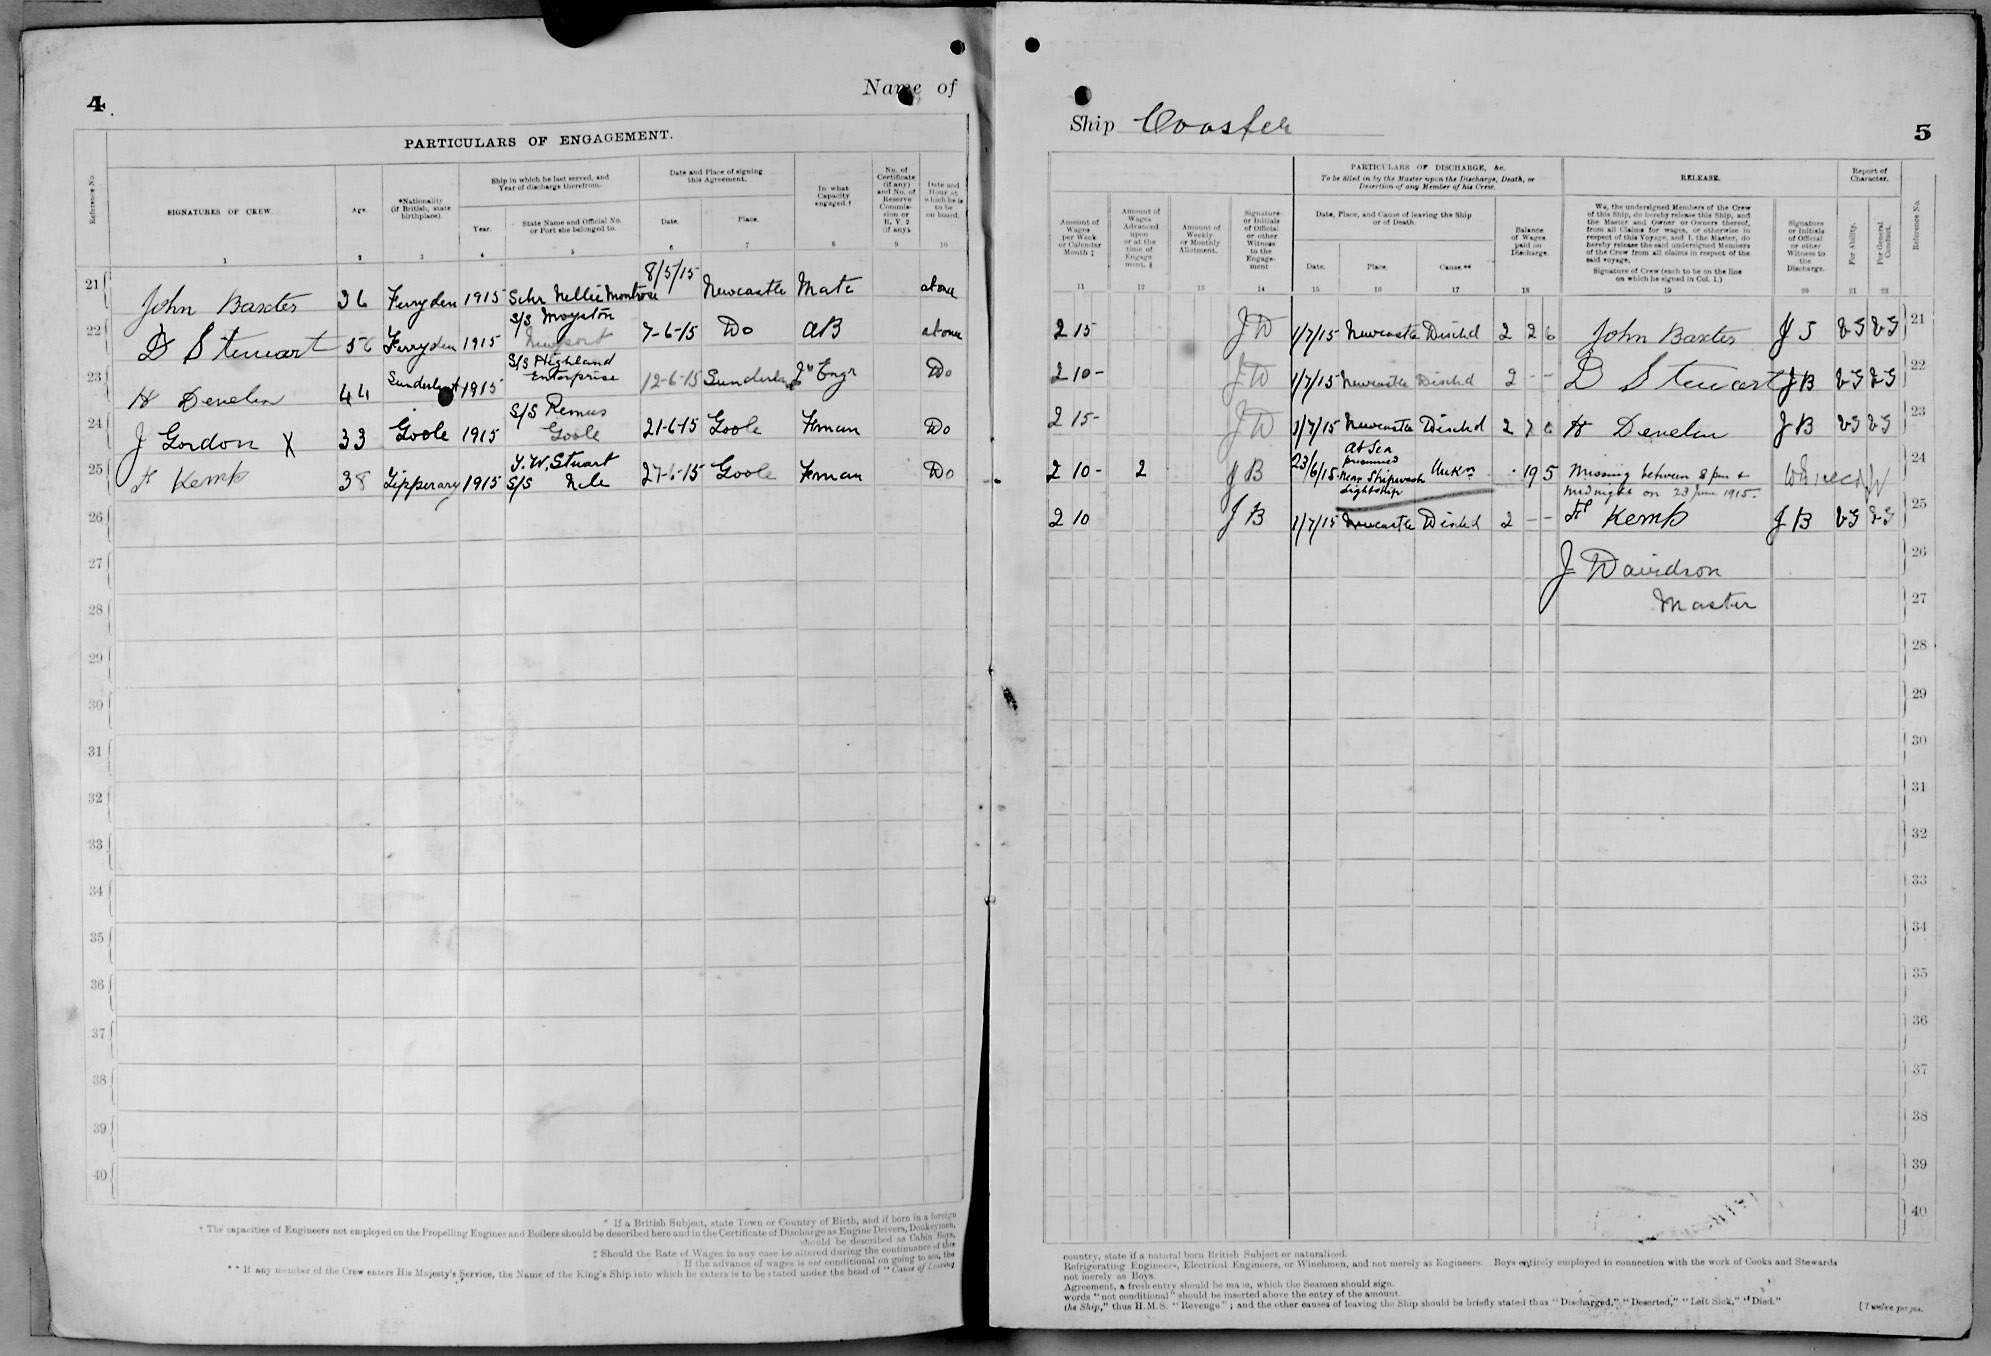 4
Name of
PARTICULARS OF ENGAGEMENT.
Reference No.
SIGNATURES OF CREW.
Age.
*Nationality (if British, state birthplace).
Ship in which he last served, and Year of discharge therefrom.
Year.
State Name and Official No. or Port she belonged to.
Date and Place of signing this Agreement.
Date.
Place.
In what Capacity engaged.†
No. of Certificate (if any) and No. of Reserve Commission or R.V. 2 (if any).
Date and Hour at which he is to be on board.
1 2 3 4 5 6 7 8 9 10
21 John Baxter 36 Ferryden 1915 Schr Nellie Montrose 8/5/15 Newcastle Mate at once
22 D Stewart 56 Ferryden 1915 S/S Moyston Newport 7-6-15 Do AB at once
23 H Develin 44 Sunderland 1915 S/S Highland Enterprise 12-6-15 Sunderland Engr Do
24 J Gordon X 33 Goole 1915 S/S Remus Goole 21-6-15 Goole Fman Do
25 H Kemp 38 Tipperary 1915 T.W. Stuart S/S Nile 27-6-15 Goole Fman Do
26
27
28
29
30
31
32
33
34
35
36
37
38
39
40
* If a British Subject, state Town or Country of Birth, and if born in a foreign
† The capacities of Engineers not employed on the Propelling Engines and Boilers should be described here and in the Certificate of Discharge as Engine Drivers, Donkeymen,
should be described as Cabin Boys,
‡ Should the Rate of Wages in any case be altered during the continuance of this
If the advance of wages is not conditional on going to sea, the
** If any member of the Crew enters His Majesty's Service, the Name of the King's Ship into which he enters is to be stated under the head of "Cause of Leaving
Ship Coaster
5
Amount of Wages per Week or Calendar Month ‡
Amount of Wages Advanced upon or at the time of Engagement. §
Amount of Weekly or Monthly Allotment.
Signature or Initials of Official or other Witness to the Engagement
PARTICULARS OF DISCHARGE, &c.
To be filled in by the Master upon the Discharge, Death, or Desertion of any Member of his Crew.
Date, Place, and Cause of leaving the Ship or of Death.
Date.
Place.
Cause.**
Balance of Wages paid on Discharge.
RELEASE.
We, the undersigned Members of the Crew
of this Ship, do hereby release this Ship, and
the Master and Owner or Owners thereof,
from all Claims for wages, or otherwise in
respect of this Voyage, and I, the Master, do
hereby release the said undersigned Members
of the Crew from all claims in respect of the
said voyage.
Signature of Crew (each to be on the line on which he signed in Col. 1.)
Signature or Initials of Official or other Witness to the Discharge.
Report of Character.
For Ability.
For General Conduct.
Reference No.
11 12 13 14 15 16 17 18 19 20 21 22
2 15 JD 1/7/15 Newcastle Dischd 2 2 6 John Baxter JS VG VG 21
2 10 - JD 1/7/15 Newcastle Dischd 2 - - D Stewart JB VG VG 22
2 15 - JD 1/7/15 Newcastle Dischd 2 7 6 H Develin JB VG VG 23
2 10 - 2 JB 23/6/15 At Sea presumed near Shipwash Lightship Unkn 19 5 Missing between 8 pm & midnight on 23 June 1915. 24
2 10 JB 1/7/15 Newcastle Dischd 2 - - H Kemp JB VG VG 25
J Davidson 26
Master 27
28
29
30
31
32
33
34
35
36
37
38
39
40
country, state if a natural born British Subject or naturalized.
Refrigerating Engineers, Electrical Engineers, or Winchmen, and not merely as Engineers. Boys entirely employed in connection with the work of Cooks and Stewards
not merely as Boys.
Agreement, a fresh entry should be made, which the Seamen should sign.
words "not conditional" should be inserted above the entry of the amount.
the Ship," thus H.M.S. "Revenge"; and the other causes of leaving the Ship should be briefly stated thus "Discharged," "Deserted," "Left Sick," "Died."
[Twelve pages.